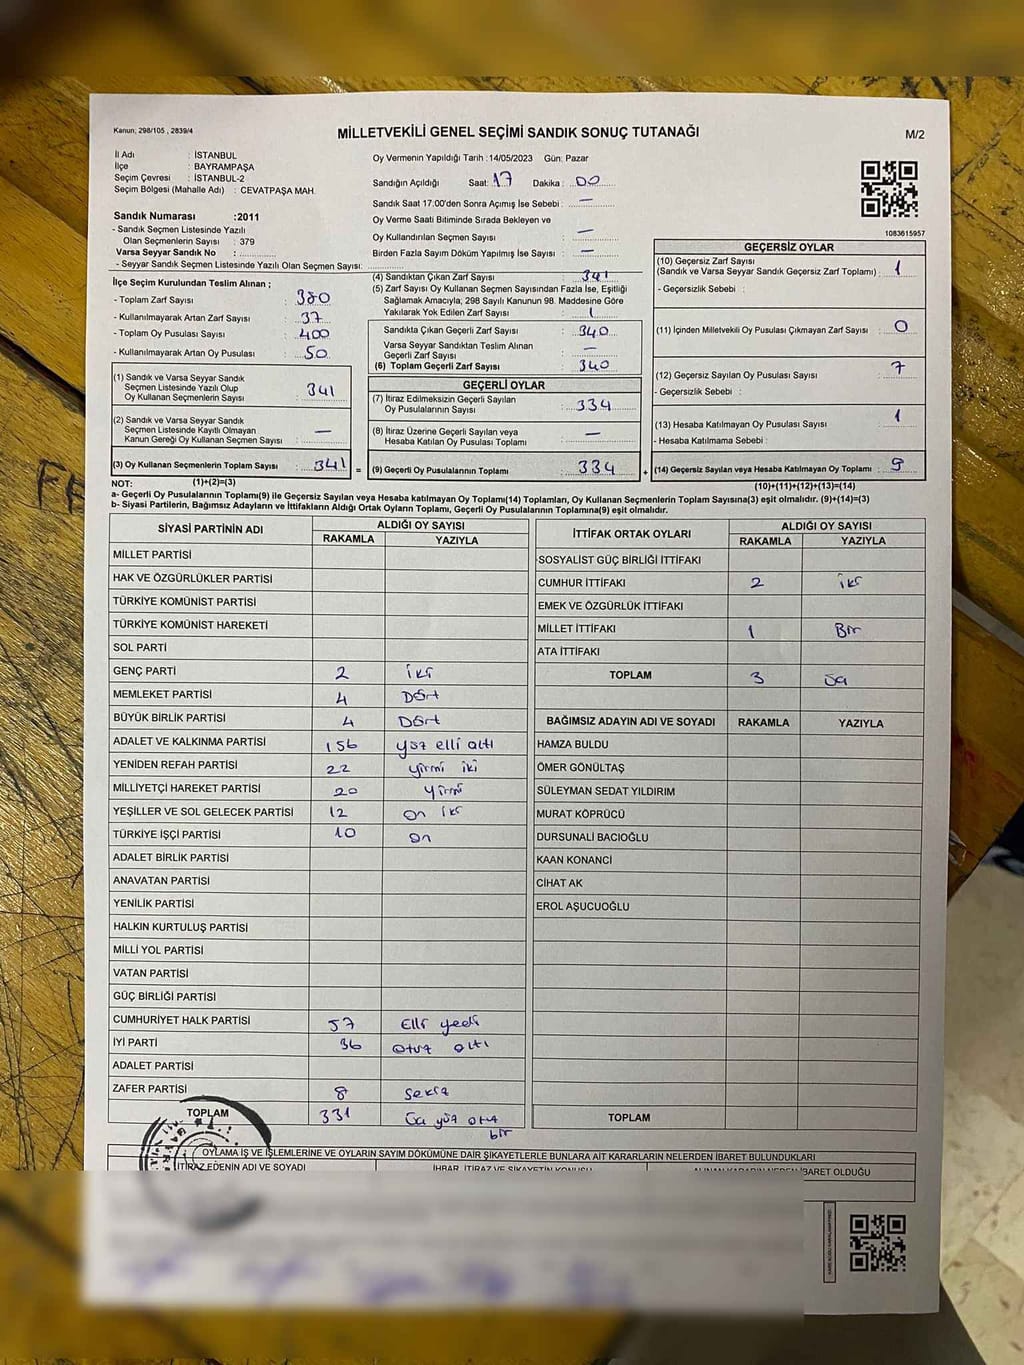 Kanun; 298/105 , 2839/4
MİLLETVEKİLİ GENEL SEÇİMİ SANDIK SONUÇ TUTANAĞI
M/2
İl Adı : İSTANBUL
İlçe : BAYRAMPAŞA
Seçim Çevresi : İSTANBUL-2
Seçim Bölgesi (Mahalle Adı) : CEVATPAŞA MAH.
Sandık Numarası :2011
- Sandık Seçmen Listesinde Yazılı
Olan Seçmenlerin Sayısı : 379
Varsa Seyyar Sandık No :
- Seyyar Sandık Seçmen Listesinde Yazılı Olan Seçmen Sayısı:
İlçe Seçim Kurulundan Teslim Alınan ;
- Toplam Zarf Sayısı : 380
- Kullanılmayarak Artan Zarf Sayısı : 37
- Toplam Oy Pusulası Sayısı : 400
- Kullanılmayarak Artan Oy Pusulası : 50
(1) Sandık ve Varsa Seyyar Sandık
Seçmen Listesinde Yazılı Olup
Oy Kullanan Seçmenlerin Sayısı : 341
(2) Sandık ve Varsa Seyyar Sandık
Seçmen Listesinde Kayıtlı Olmayan
Kanun Gereği Oy Kullanan Seçmen Sayısı : —
(3) Oy Kullanan Seçmenlerin Toplam Sayısı : 341 =
(1)+(2)=(3)
Oy Vermenin Yapıldığı Tarih :14/05/2023 Gün: Pazar
Sandığın Açıldığı Saat: 17 Dakika : 00
Sandık Saat 17:00'den Sonra Açımış İse Sebebi : —
Oy Verme Saati Bitiminde Sırada Bekleyen ve
Oy Kullandırılan Seçmen Sayısı : —
Birden Fazla Sayım Döküm Yapılmış İse Sayısı : —
(4) Sandıktan Çıkan Zarf Sayısı : 341
(5) Zarf Sayısı Oy Kullanan Seçmen Sayısından Fazla İse, Eşitliği
Sağlamak Amacıyla; 298 Sayılı Kanunun 98. Maddesine Göre
Yakılarak Yok Edilen Zarf Sayısı : 1
Sandıkta Çıkan Geçerli Zarf Sayısı : 340
Varsa Seyyar Sandıktan Teslim Alınan
Geçerli Zarf Sayısı : —
(6) Toplam Geçerli Zarf Sayısı : 340
GEÇERLİ OYLAR
(7) İtiraz Edilmeksizin Geçerli Sayılan
Oy Pusulalarının Sayısı : 334
(8) İtiraz Üzerine Geçerli Sayılan veya
Hesaba Katılan Oy Pusulası Toplamı : —
(9) Geçerli Oy Pusulalarının Toplamı : 334 +
1083615957
GEÇERSİZ OYLAR
(10) Geçersiz Zarf Sayısı
(Sandık ve Varsa Seyyar Sandık Geçersiz Zarf Toplamı) : 1
- Geçersizlik Sebebi :
(11) İçinden Milletvekili Oy Pusulası Çıkmayan Zarf Sayısı : 0
(12) Geçersiz Sayılan Oy Pusulası Sayısı : 7
- Geçersizlik Sebebi :
(13) Hesaba Katılmayan Oy Pusulası Sayısı : 1
- Hesaba Katılmama Sebebi :
(14) Geçersiz Sayılan veya Hesaba Katılmayan Oy Toplamı : 9
(10)+(11)+(12)+(13)=(14)
NOT:
a- Geçerli Oy Pusulalarının Toplamı(9) ile Geçersiz Sayılan veya Hesaba katılmayan Oy Toplamı(14) Toplamları, Oy Kullanan Seçmenlerin Toplam Sayısına(3) eşit olmalıdır. (9)+(14)=(3)
b- Siyasi Partilerin, Bağımsız Adayların ve İttifakların Aldığı Oy Oyların Toplamı, Geçerli Oy Pusulalarının Toplamına(9) eşit olmalıdır.
SİYASİ PARTİNİN ADI ALDIĞI OY SAYISI
RAKAMLA YAZIYLA
MİLLET PARTİSİ
HAK VE ÖZGÜRLÜKLER PARTİSİ
TÜRKİYE KOMÜNİST PARTİSİ
TÜRKİYE KOMÜNİST HAREKETİ
SOL PARTİ
GENÇ PARTİ 2 iki
MEMLEKET PARTİSİ 4 Dört
BÜYÜK BİRLİK PARTİSİ 4 Dört
ADALET VE KALKINMA PARTİSİ 156 yüz elli altı
YENİDEN REFAH PARTİSİ 22 yirmi iki
MİLLİYETÇİ HAREKET PARTİSİ 20 yirmi
YEŞİLLER VE SOL GELECEK PARTİSİ 12 on iki
TÜRKİYE İŞÇİ PARTİSİ 10 on
ADALET BİRLİK PARTİSİ
ANAVATAN PARTİSİ
YENİLİK PARTİSİ
HALKIN KURTULUŞ PARTİSİ
MİLLİ YOL PARTİSİ
VATAN PARTİSİ
GÜÇ BİRLİĞİ PARTİSİ
CUMHURİYET HALK PARTİSİ 57 Elli yedi
İYİ PARTİ 36 otuz altı
ADALET PARTİSİ
ZAFER PARTİSİ 8 sekiz
TOPLAM 331 Üç yüz otuz
bir
İTTİFAK ORTAK OYLARI ALDIĞI OY SAYISI
RAKAMLA YAZIYLA
SOSYALİST GÜÇ BİRLİĞİ İTTİFAKI
CUMHUR İTTİFAKI 2 iki
EMEK VE ÖZGÜRLÜK İTTİFAKI
MİLLET İTTİFAKI 1 Bir
ATA İTTİFAKI
TOPLAM 3 üç
BAĞIMSIZ ADAYIN ADI VE SOYADI RAKAMLA YAZIYLA
HAMZA BULDU
ÖMER GÖNÜLTAŞ
SÜLEYMAN SEDAT YILDIRIM
MURAT KÖPRÜCÜ
DURSUNALİ BACIOĞLU
KAAN KONANCİ
CİHAT AK
EROL AŞUCUOĞLU
TOPLAM
OYLAMA İŞ VE İŞLEMLERİNE VE OYLARIN SAYIM DÖKÜMÜNE DAİR ŞİKAYETLERLE BUNLARA AİT KARARLARIN NELERDEN İBARET BULUNDUKLARI
İTİRAZ EDENİN ADI VE SOYADI İHBAR, İTİRAZ VE ŞİKAYETİN KONUSU ALINAN KARARIN NEDEN İBARET OLDUĞU